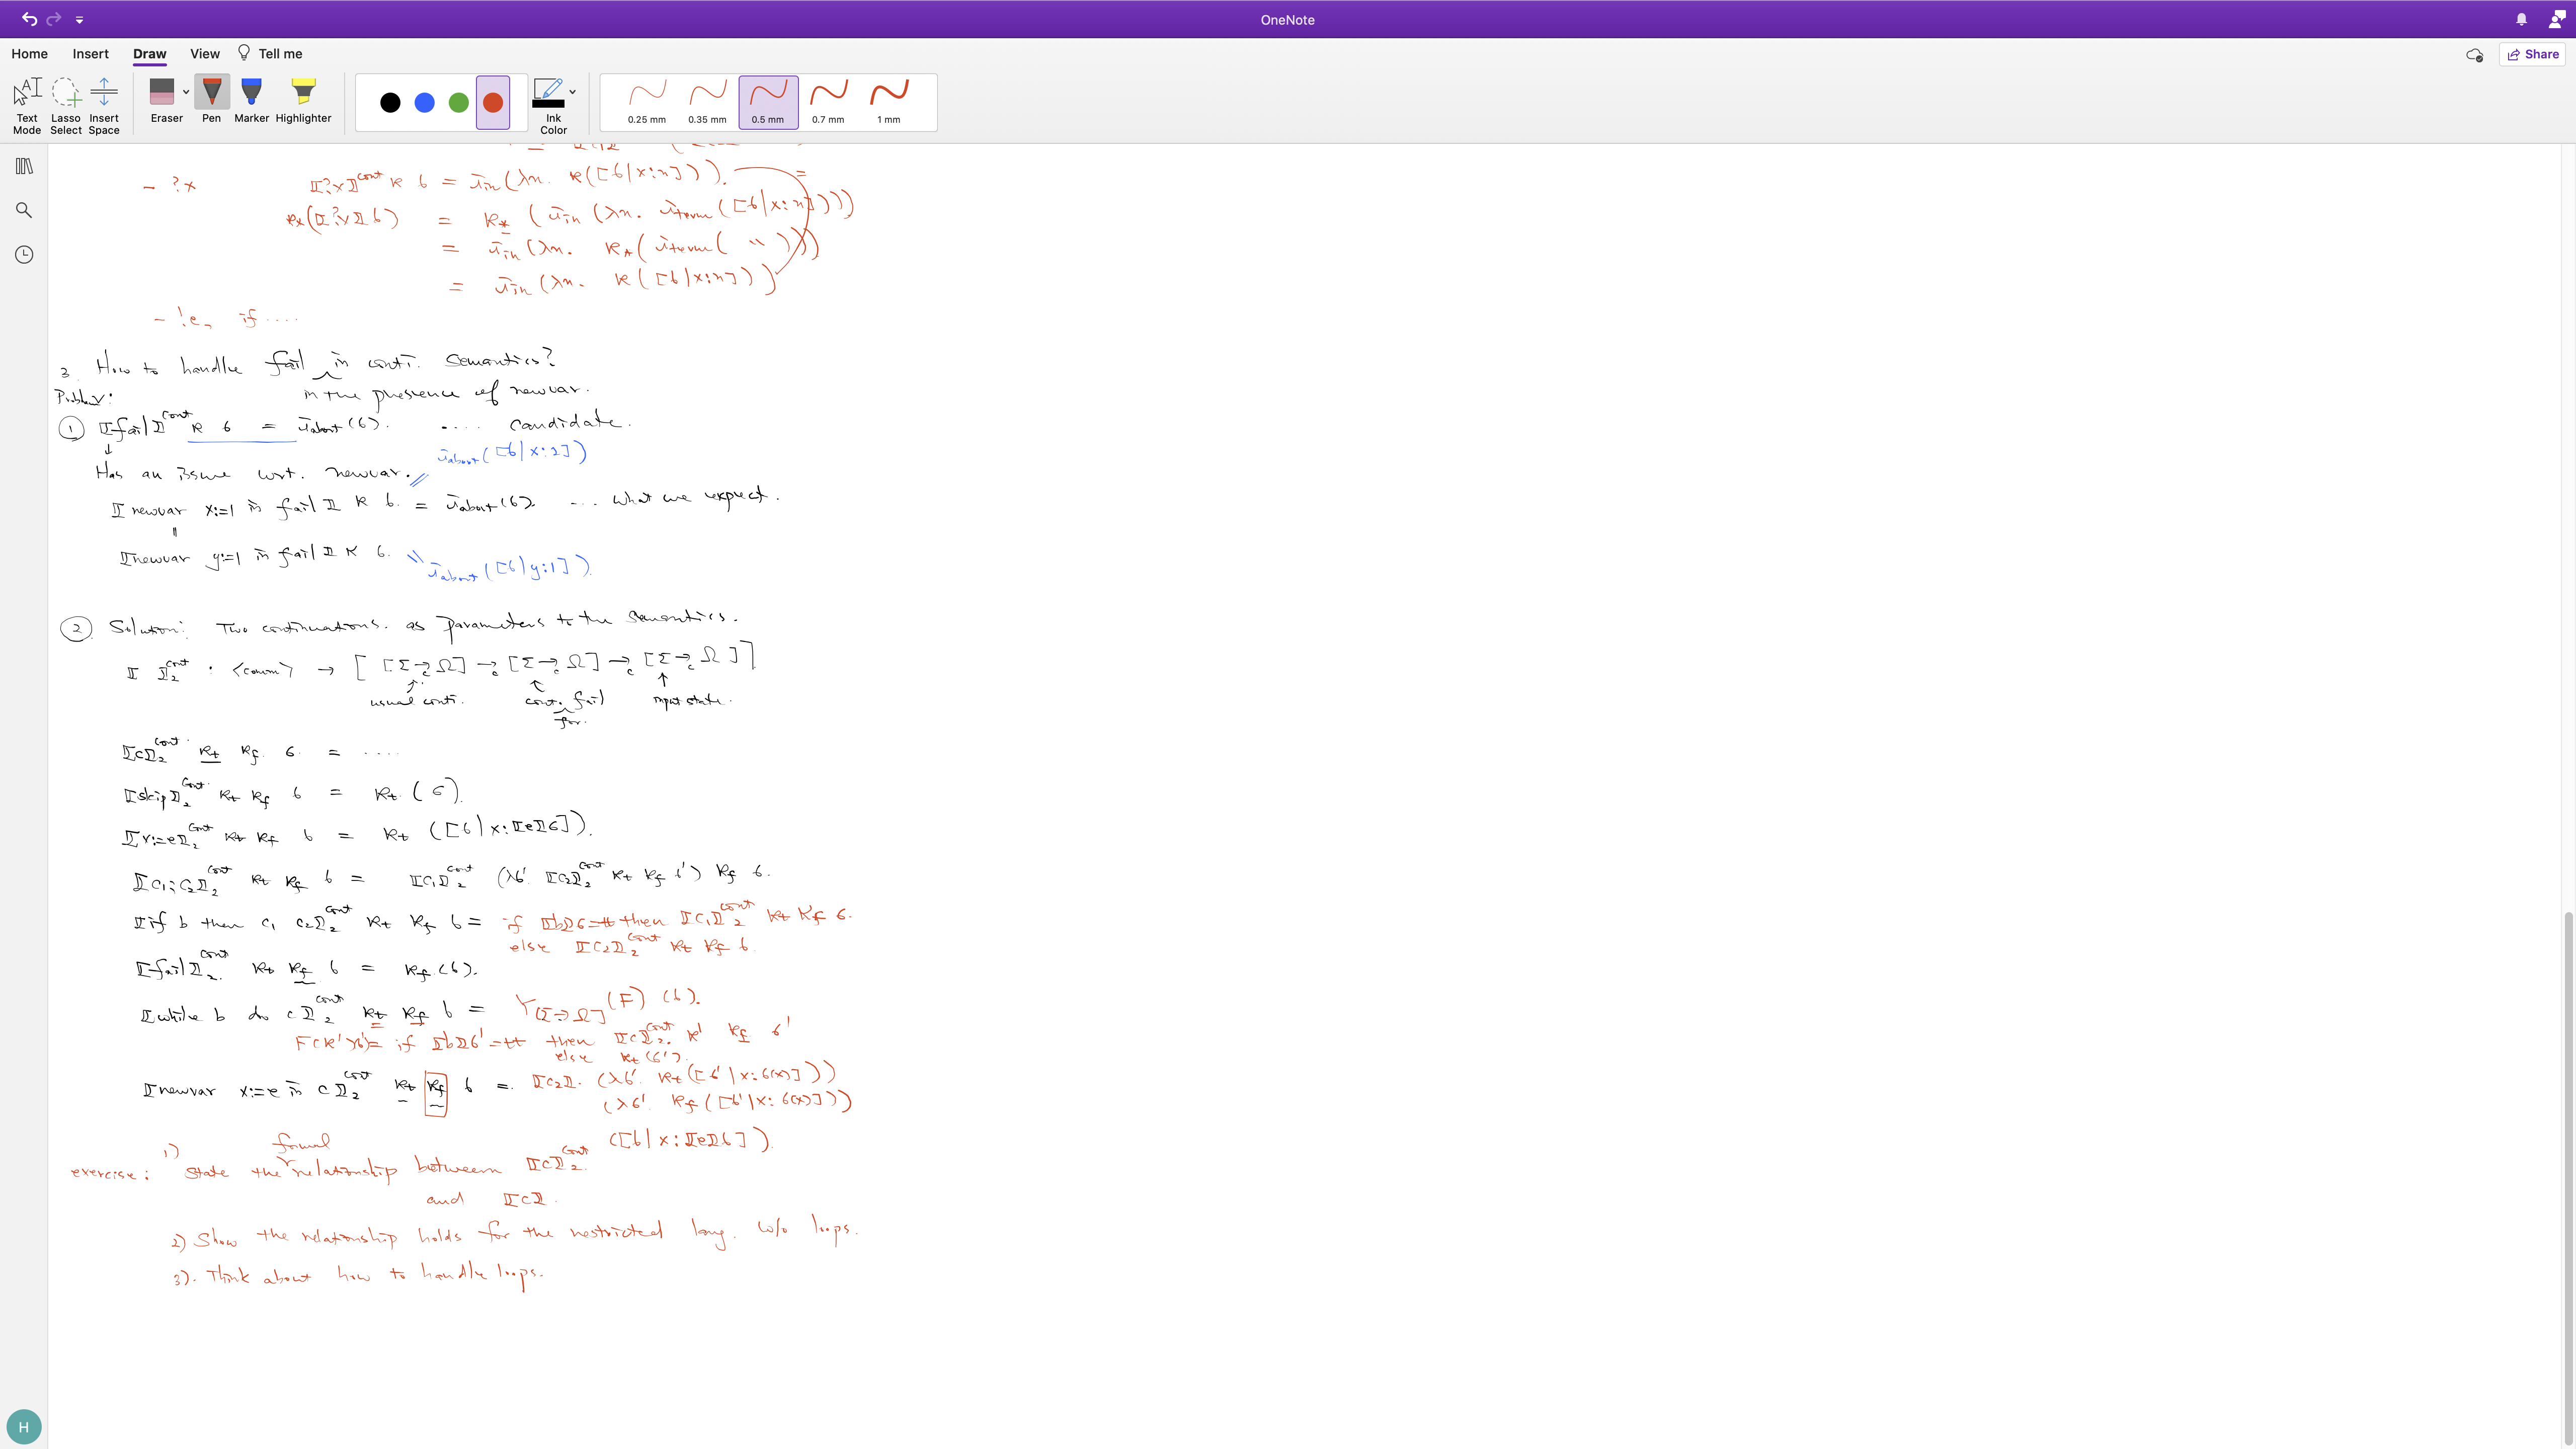 OneNote
Home Insert Draw View Tell me
Share
Text Mode
Lasso Select
Insert Space
Eraser
Pen
Marker
Highlighter
Ink Color
0.25 mm
0.35 mm
0.5 mm
0.7 mm
1 mm
- ?x ⟦?x⟧^cont κ σ = ι_in(λn. κ([σ|x:n])). =
κ*(⟦?x⟧σ) = κ* (ι_in (λn. ι_term([σ|x:n])))
= ι_in (λn. κ*(ι_term( " )))
= ι_in (λn. κ([σ|x:n]))
- !e, if ....
3. How to handle fail in conti. semantics?
in the presence of newvar.
Problem:
① ⟦fail⟧^cont κ σ = ι_abort(σ). .... candidate.
ι_abort([σ|x:2])
↓
Has an issue wrt. newvar.
⟦newvar x:=1 in fail⟧ κ σ. = ι_abort(σ). ... what we expect.
||
⟦newvar y:=1 in fail⟧ κ σ.
ι_abort([σ|y:1]).
② Solution: Two continuations. as parameters to the semantics.
⟦ ⟧₂^cont : <comm> → [ [Σ →c Ω] →c [Σ →c Ω] →c [Σ →c Ω ]]
usual conti. cont. for fail input state.
⟦c⟧₂^cont κt κf σ = ....
⟦skip⟧₂^cont κt κf σ = κt (σ).
⟦x:=e⟧₂^cont κt κf σ = κt ([σ|x:⟦e⟧σ]).
⟦c₁;c₂⟧₂^cont κt κf σ = ⟦c₁⟧₂^cont (λσ'. ⟦c₂⟧₂^cont κt κf σ') κf σ.
⟦if b then c₁ c₂⟧₂^cont κt κf σ = if ⟦b⟧σ=tt then ⟦c₁⟧₂^cont κt κf σ.
else ⟦c₂⟧₂^cont κt κf σ.
⟦fail⟧₂^cont κt κf σ = κf (σ).
⟦while b do c⟧₂^cont κt κf σ = Y_[Σ→Ω] (F) (σ).
F(κ')(σ')= if ⟦b⟧σ'=tt then ⟦c⟧₂^cont κ' κf σ'
else κt (σ').
⟦newvar x:=e in c⟧₂^cont κt κf σ = ⟦c₂⟧. (λσ'. κt([σ'|x:σ(x)]))
(λσ'. κf([σ'|x:σ(x)]))
([σ|x:⟦e⟧σ]).
exercise: 1) State the formal relationship between ⟦c⟧₂^cont
and ⟦c⟧.
2) Show the relationship holds for the restricted lang. w/o loops.
3). Think about how to handle loops.
H